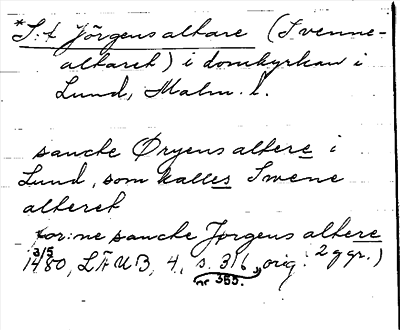 *S:t Jörgens altare (Svenne-
altaret) i domkyrkan i
Lund, Malm. l.
sancte Øryens altere i
Lund, som kalles Swene
alteret
for:ne sancte Jørgens altere
3/5
1480, LÄUB, 4, s. 316, orig. 2 ggr.)
nr 355.